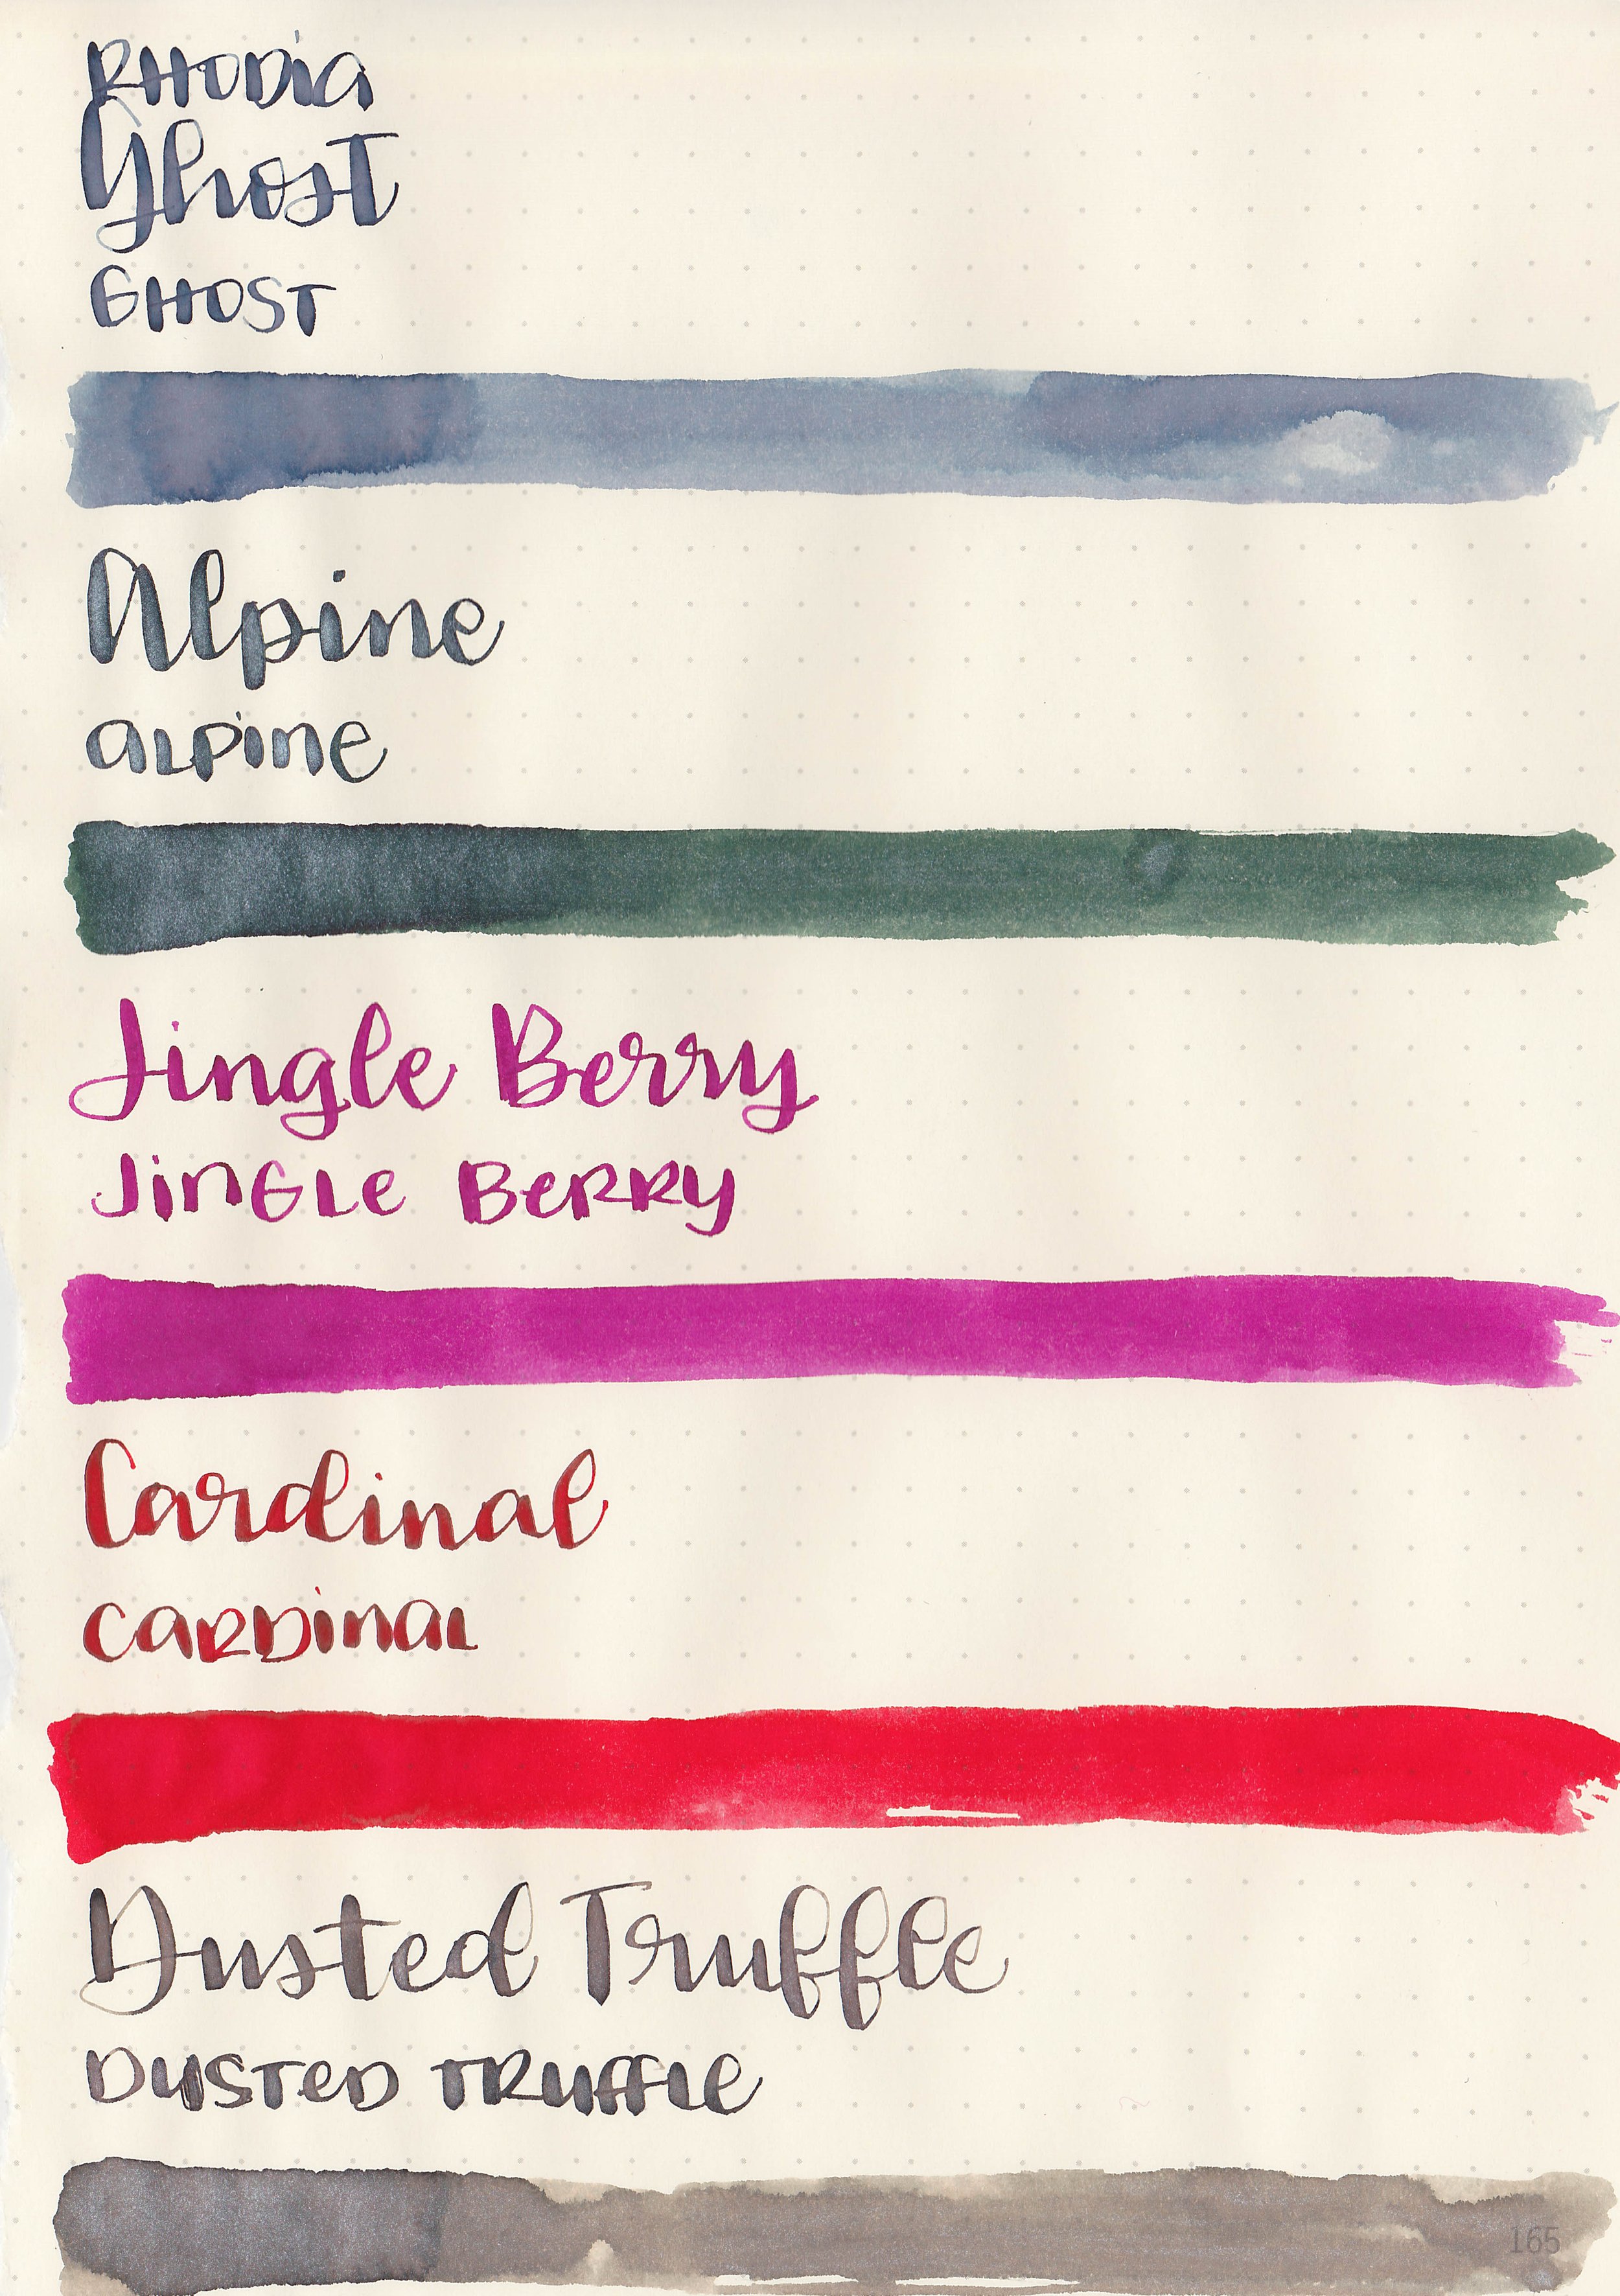 RHODia
Ghost
GHOST
Alpine
aLPine
Jingle Berry
JinGLe BeRRy
Cardinal
CaRDinaL
Dusted Truffle
DUSTeD TRuffLe
165